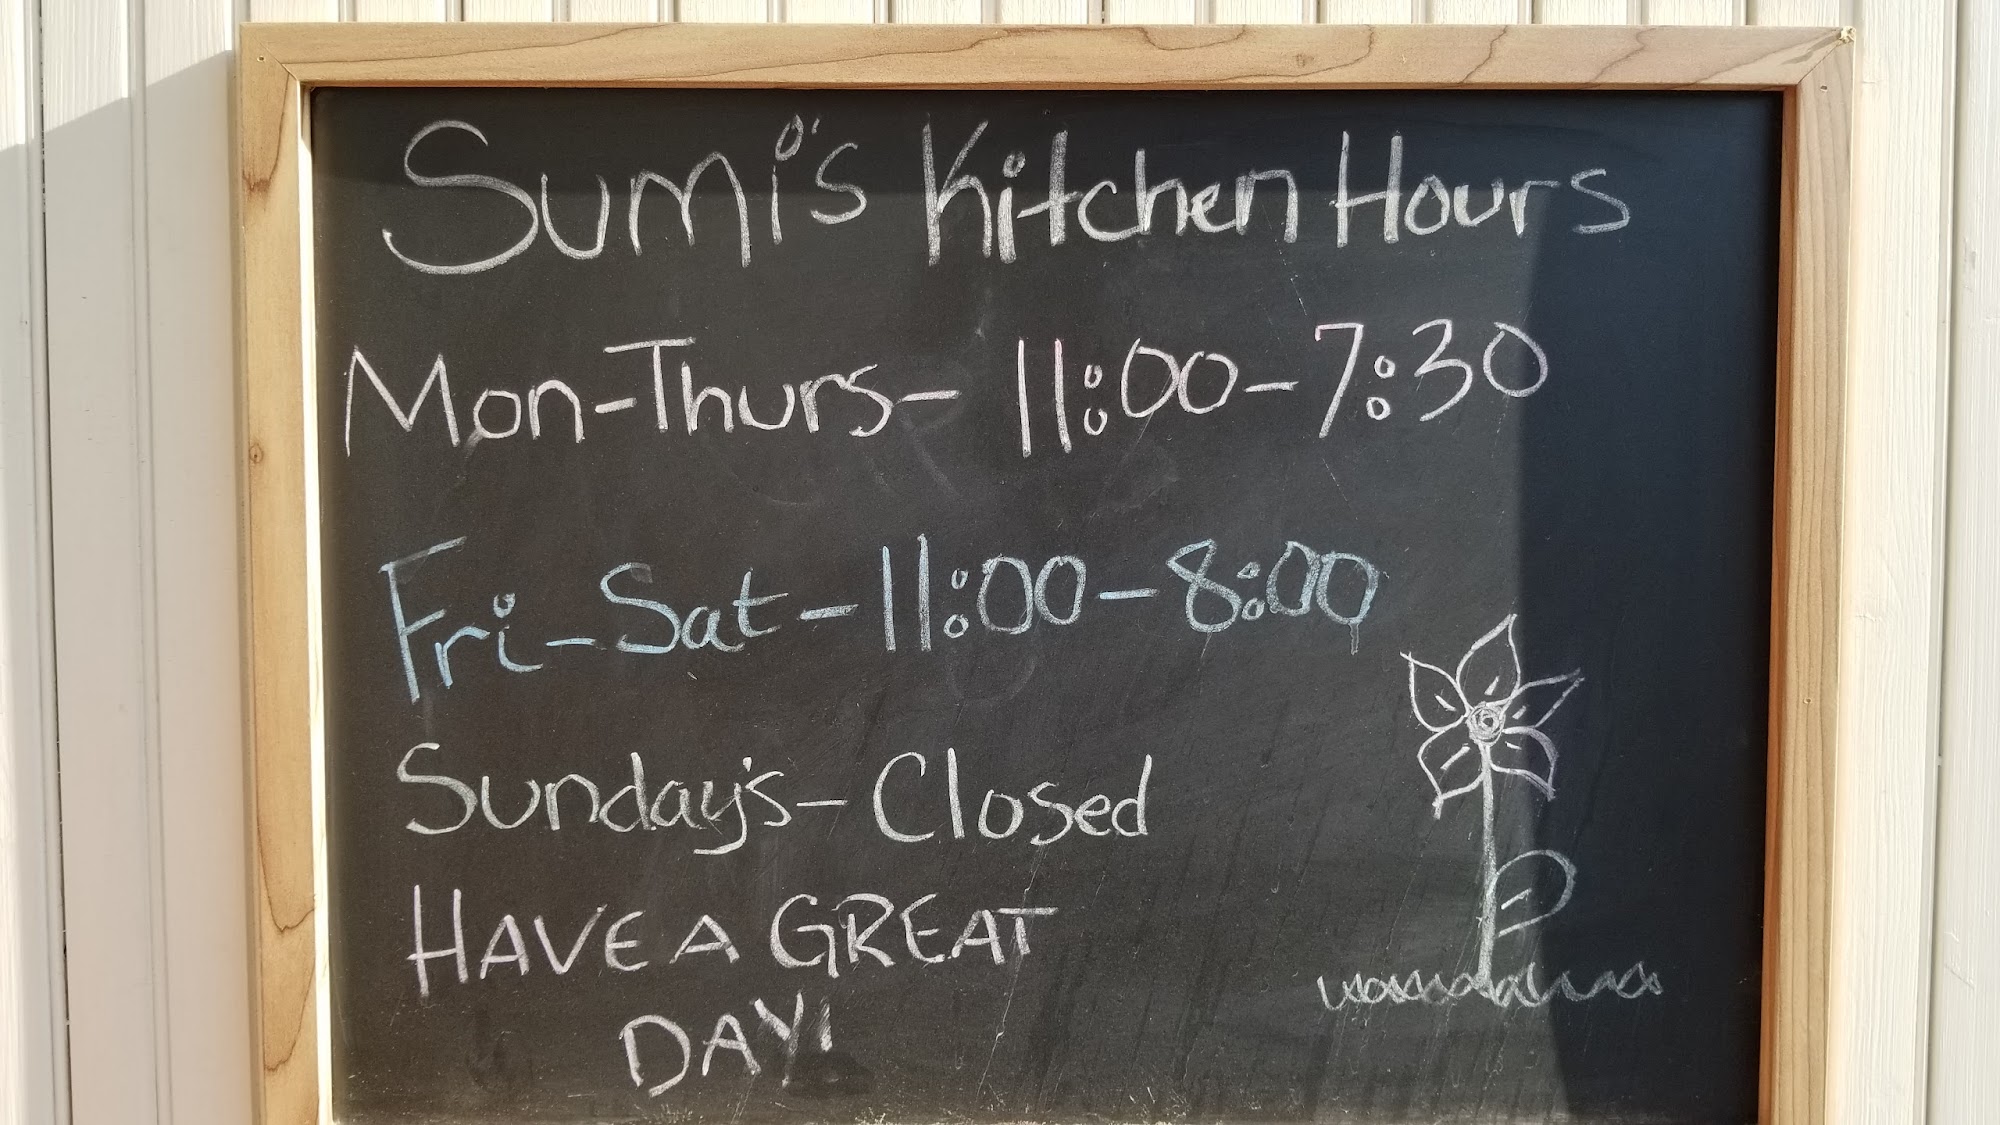 Sumi's Kitchen Hours
Mon-Thurs- 11:00-7:30
Fri-Sat-11:00-8:00
Sunday's-Closed
HAVE A GREAT
DAY!